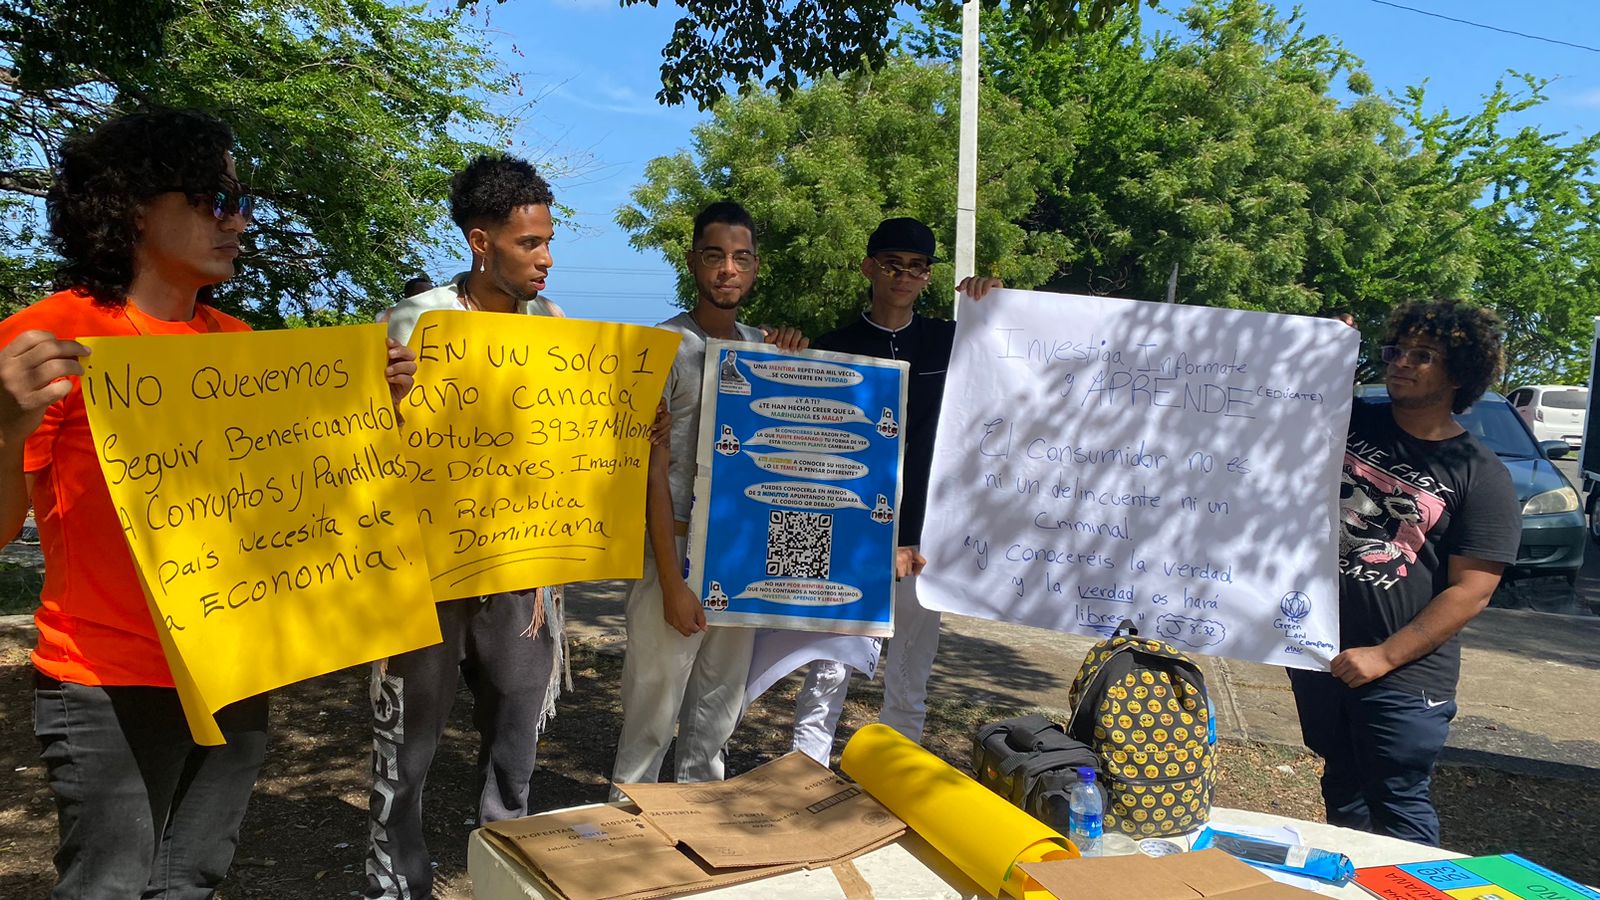 ¡No Queremos
Seguir Beneficiando
A Corruptos y Pandillas.
país necesita de
a Economía!
En un solo 1
año Canadá
obtubo 393.7 Millone
De Dólares. Imagina
n Republica
Dominicana
UNA MENTIRA REPETIDA MIL VECES...
...SE CONVIERTE EN VERDAD
¿Y A TI?
¿TE HAN HECHO CREER QUE LA
MARIHUANA ES MALA?
la
nota
SI CONOCIERAS LA RAZON POR
LA QUE FUISTE ENGANAD@ TU FORMA DE VER
ESTA INOCENTE PLANTA CAMBIARIA
la
nota
A CONOCER SU HISTORIA?
¿O LE TEMES A PENSAR DIFERENTE?
PUEDES CONOCERLA EN MENOS
DE 2 MINUTOS APUNTANDO TU CÁMARA
AL CODIGO QR DEBAJO
la
nota
NO HAY PEOR MENTIRA QUE LA
QUE NOS CONTAMOS A NOSOTROS MISMOS
INVESTIGA, APRENDE Y LIBERATE
la
nota
Investiga, Informate
y APRENDE (EDÚCATE)
El Consumidor no es
ni un delincuente ni un
Criminal.
"y conoceréis la verdad
y la verdad os hará
libres" J 8:32
the
Green
Land
Company
MNC
LIVE FAST
RASH
24 OFERTAS
61031646
24 OFERTAS
OFERTA
OFERTA